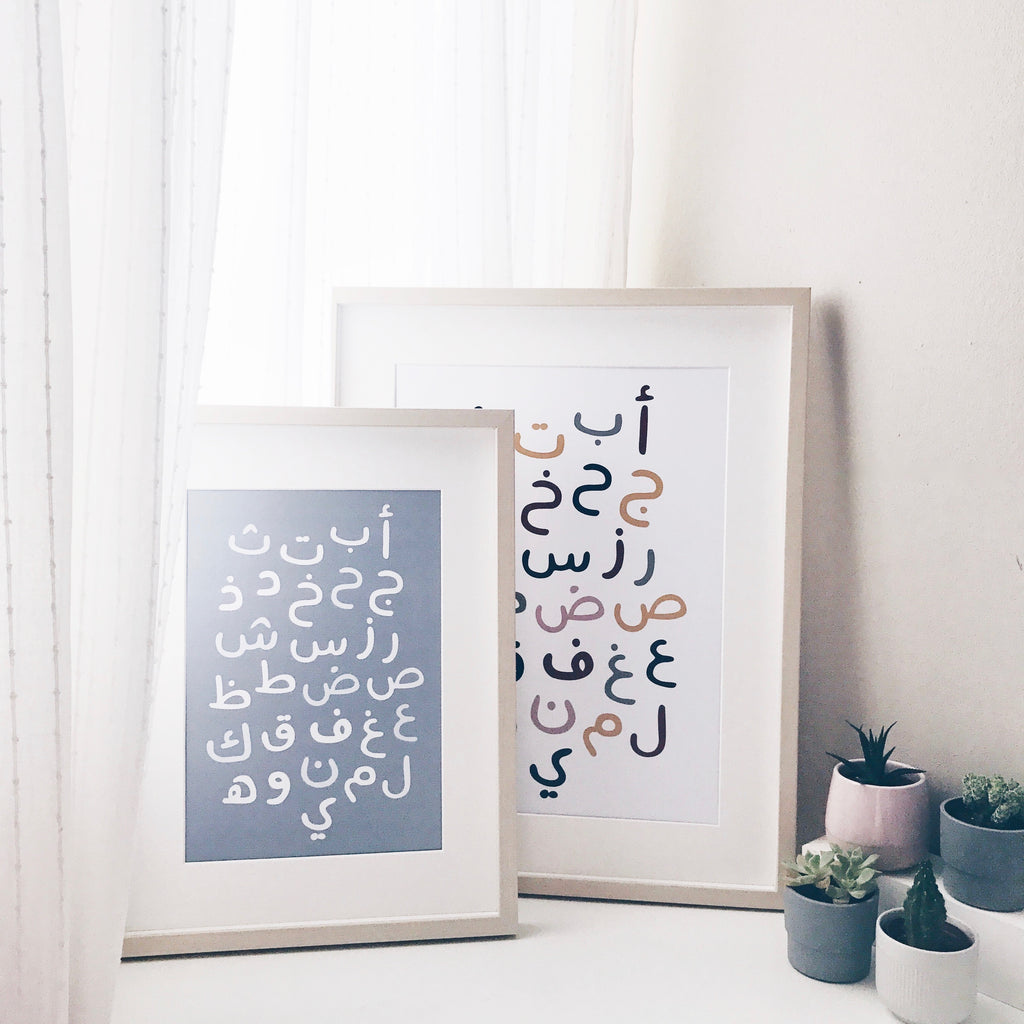 أ ب ت ث
ج ح خ د ذ
ر ز س ش
ص ض ط ظ
ع غ ف ق ك
ل م ن و ه
ي
أ ب ت
ج ح خ
ر ز س
ص ض
ع غ ف
ل م ن
ي